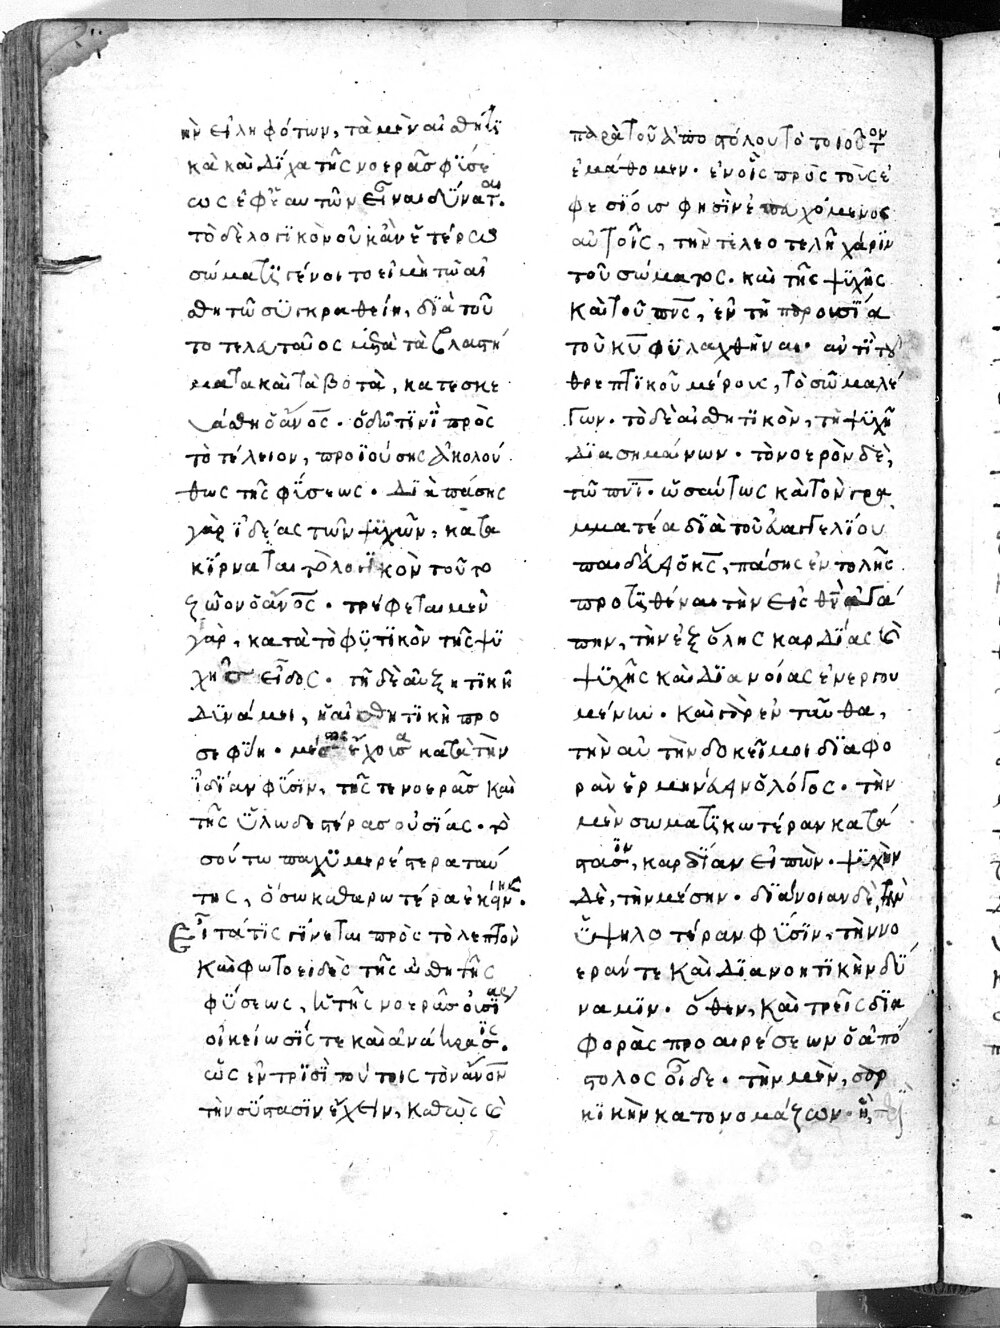 ὴν εἰληφότων, τὰ μὲν αἰσθητι
κὰ καὶ δίχα τῆς νοερᾶς φύσε
ως ἐφ' ἑαυτῶν εἶναι δύναται.
τὸ δὲ λογικὸν οὐκ ἂν ἑτέρως
σώματι γένοιτο εἰ μὴ τῷ αἰσ
θητῷ συγκραθείη, διὰ τοῦ
το τελευταῖος μετὰ τὰ βλαστή
ματα καὶ τὰ βοτὰ, κατεσκε
υάσθη ὁ ἄνος. ὁδῷ τινὶ πρὸς
τὸ τέλειον, προϊούσης ἀκολού
θως τῆς φύσεως. Διὰ πάσης
γὰρ ἰδέας τῶν ψυχῶν, κατα
κίρναται τὸ λογικὸν τοῦτο
ζῶον ὁ ἄνος. τρέφεται μὲν
γὰρ, κατὰ τὸ φυτικὸν τῆς ψυ
χῆς εἶδος. τῇ δὲ αὐξητικῇ
δυνάμει, ἡ αἰσθητικὴ προ
σεφύη. μέσως ἔχουσα κατὰ τὴν
ἰδίαν φύσιν, τῆς τε νοερᾶς καὶ
τῆς ὑλωδεστέρας οὐσίας. το
σούτω παχυμερέστερα ταύ
της, ὅσω καθαρωτέρα ἐκείνης.
Εἶτά τις γίνεται πρὸς τὸ λεπτὸν
καὶ φωτοειδὲς τῆς αἰσθητῆς
φύσεως, κ τῆς νοερᾶς οὐσίας
οἰκείωσίς τε καὶ ἀνάκρασις.
ὡς ἐν τρισὶ τούτοις τὸν ἄνον
τὴν σύστασιν ἔχειν, καθὼς κ
παρὰ τοῦ ἀποστόλου τὸ τοιοῦτον
ἐμάθομεν. ἐν οἷς πρὸς τοὺς ἐ
φεσίους φησὶν ἐπευχόμενος
αὐτοῖς, τὴν τελεοτελῆ χάριν
τοῦ σώματος. καὶ τῆς ψυχῆς
καὶ τοῦ πνς, ἐν τῇ παρουσία
τοῦ κυ φυλαχθῆναι. ἀντὶ τοῦ
θρεπτικοῦ μέρους, τὸ σῶμα λέ
γων. τὸ δὲ αἰσθητικὸν, τῇ ψυχῇ
διασημαίνων. τὸ νοερὸν δὲ,
τῷ πνι. ὡσαύτως καὶ τὸν γρα
μματέα διὰ τοῦ εὐαγγελίου
παιδεύει ὁ κς, πάσης ἐντολῆς
προτιθέναι τὴν εἰς θν ἀγά
πην, τὴν ἐξ ὅλης καρδίας κ
ψυχῆς καὶ διανοίας ἐνεργου
μένην. καὶ γὰρ ἐνταῦθα,
τὴν αὐτὴν δοκεῖ μοι διαφο
ρὰν ἑρμηνεύειν ὁ λόγος. τὴν
μὲν σωματικωτέραν κατά
στασιν, καρδίαν εἰπὼν. ψυχὴν
δὲ, τὴν μέσην. διάνοιαν δὲ, τὴν
ὑψηλοτέραν φύσιν, τὴν νο
εράν τε καὶ διανοητικὴν δύ
ναμιν. ὅθεν, καὶ τρεῖς δια
φορὰς προαιρέσεων ὁ ἀπό
στολος οἶδε. τὴν μὲν, σαρ
κικὴν κατονομάζων. ἣ, περὶ